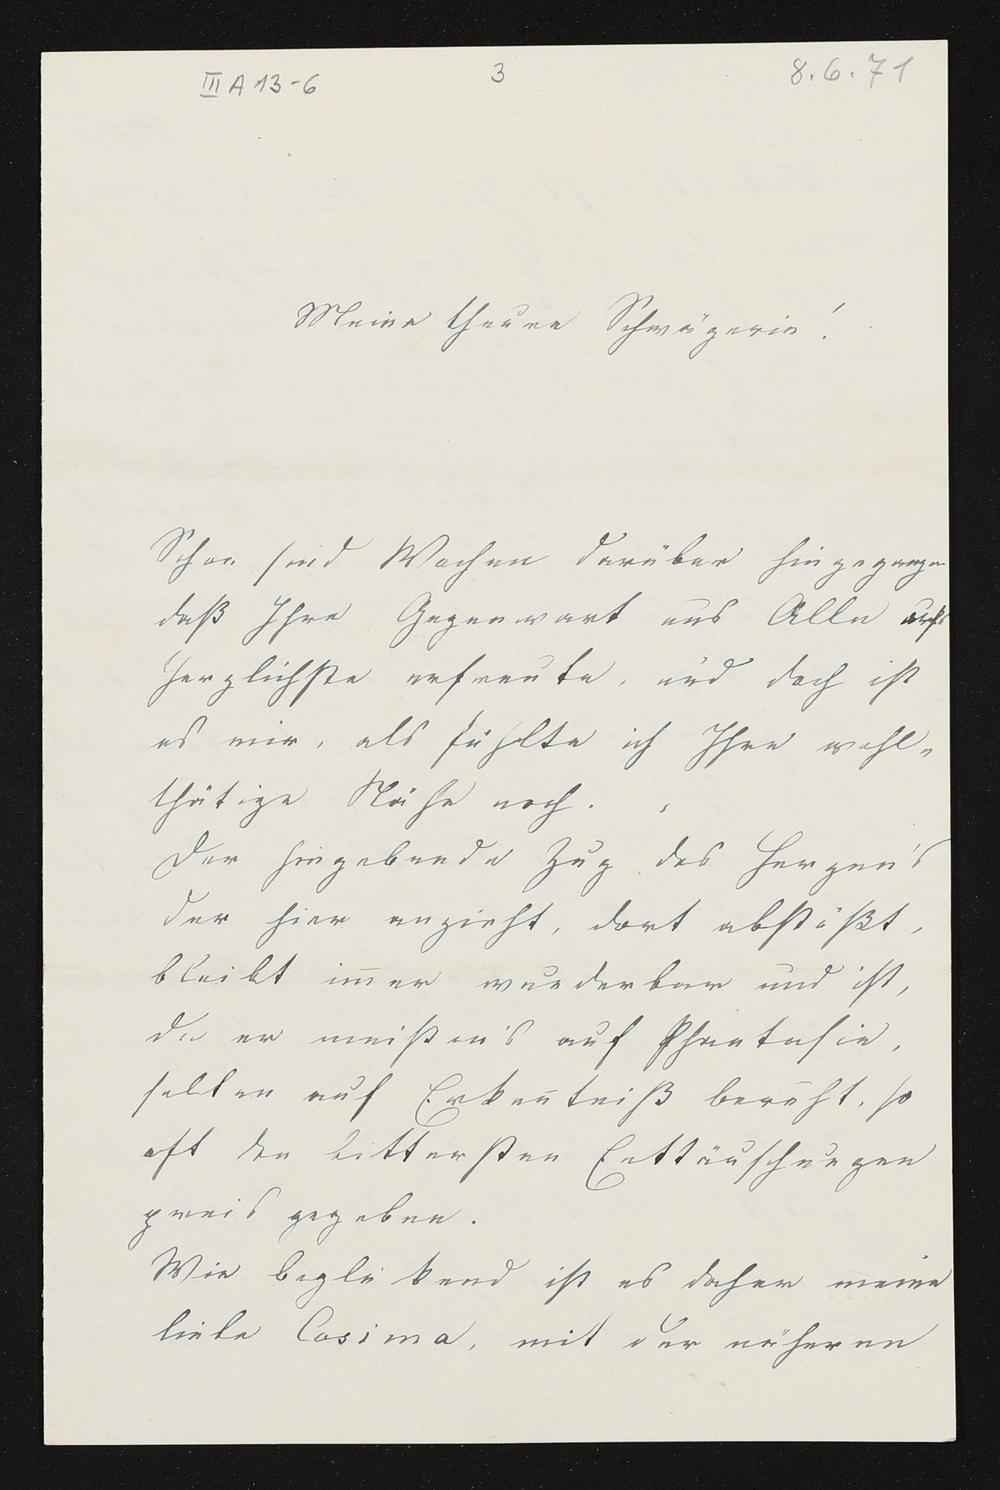 III A 13-6
3
8.6.71
Meine theure Schwägerin!
Schon sind Wochen darüber hingegangen
daß Ihre Gegenwart uns Alle aufs
Herzlichste erfreute, und doch ist
es mir, als fühlte ich Ihre wohl„
thätige Nähe noch.
Der hingebende Zug des Herzen's
der hier anzieht, dort abstößt,
bleibt im̅er wunderbar und ist,
da er meisten's auf Phantasie,
selten auf Erken̅tniß beruht, so
oft den bittersten Enttäuschungen
preis gegeben.
Wie beglükend ist es daher meine
liebe Cosima, mit der näheren